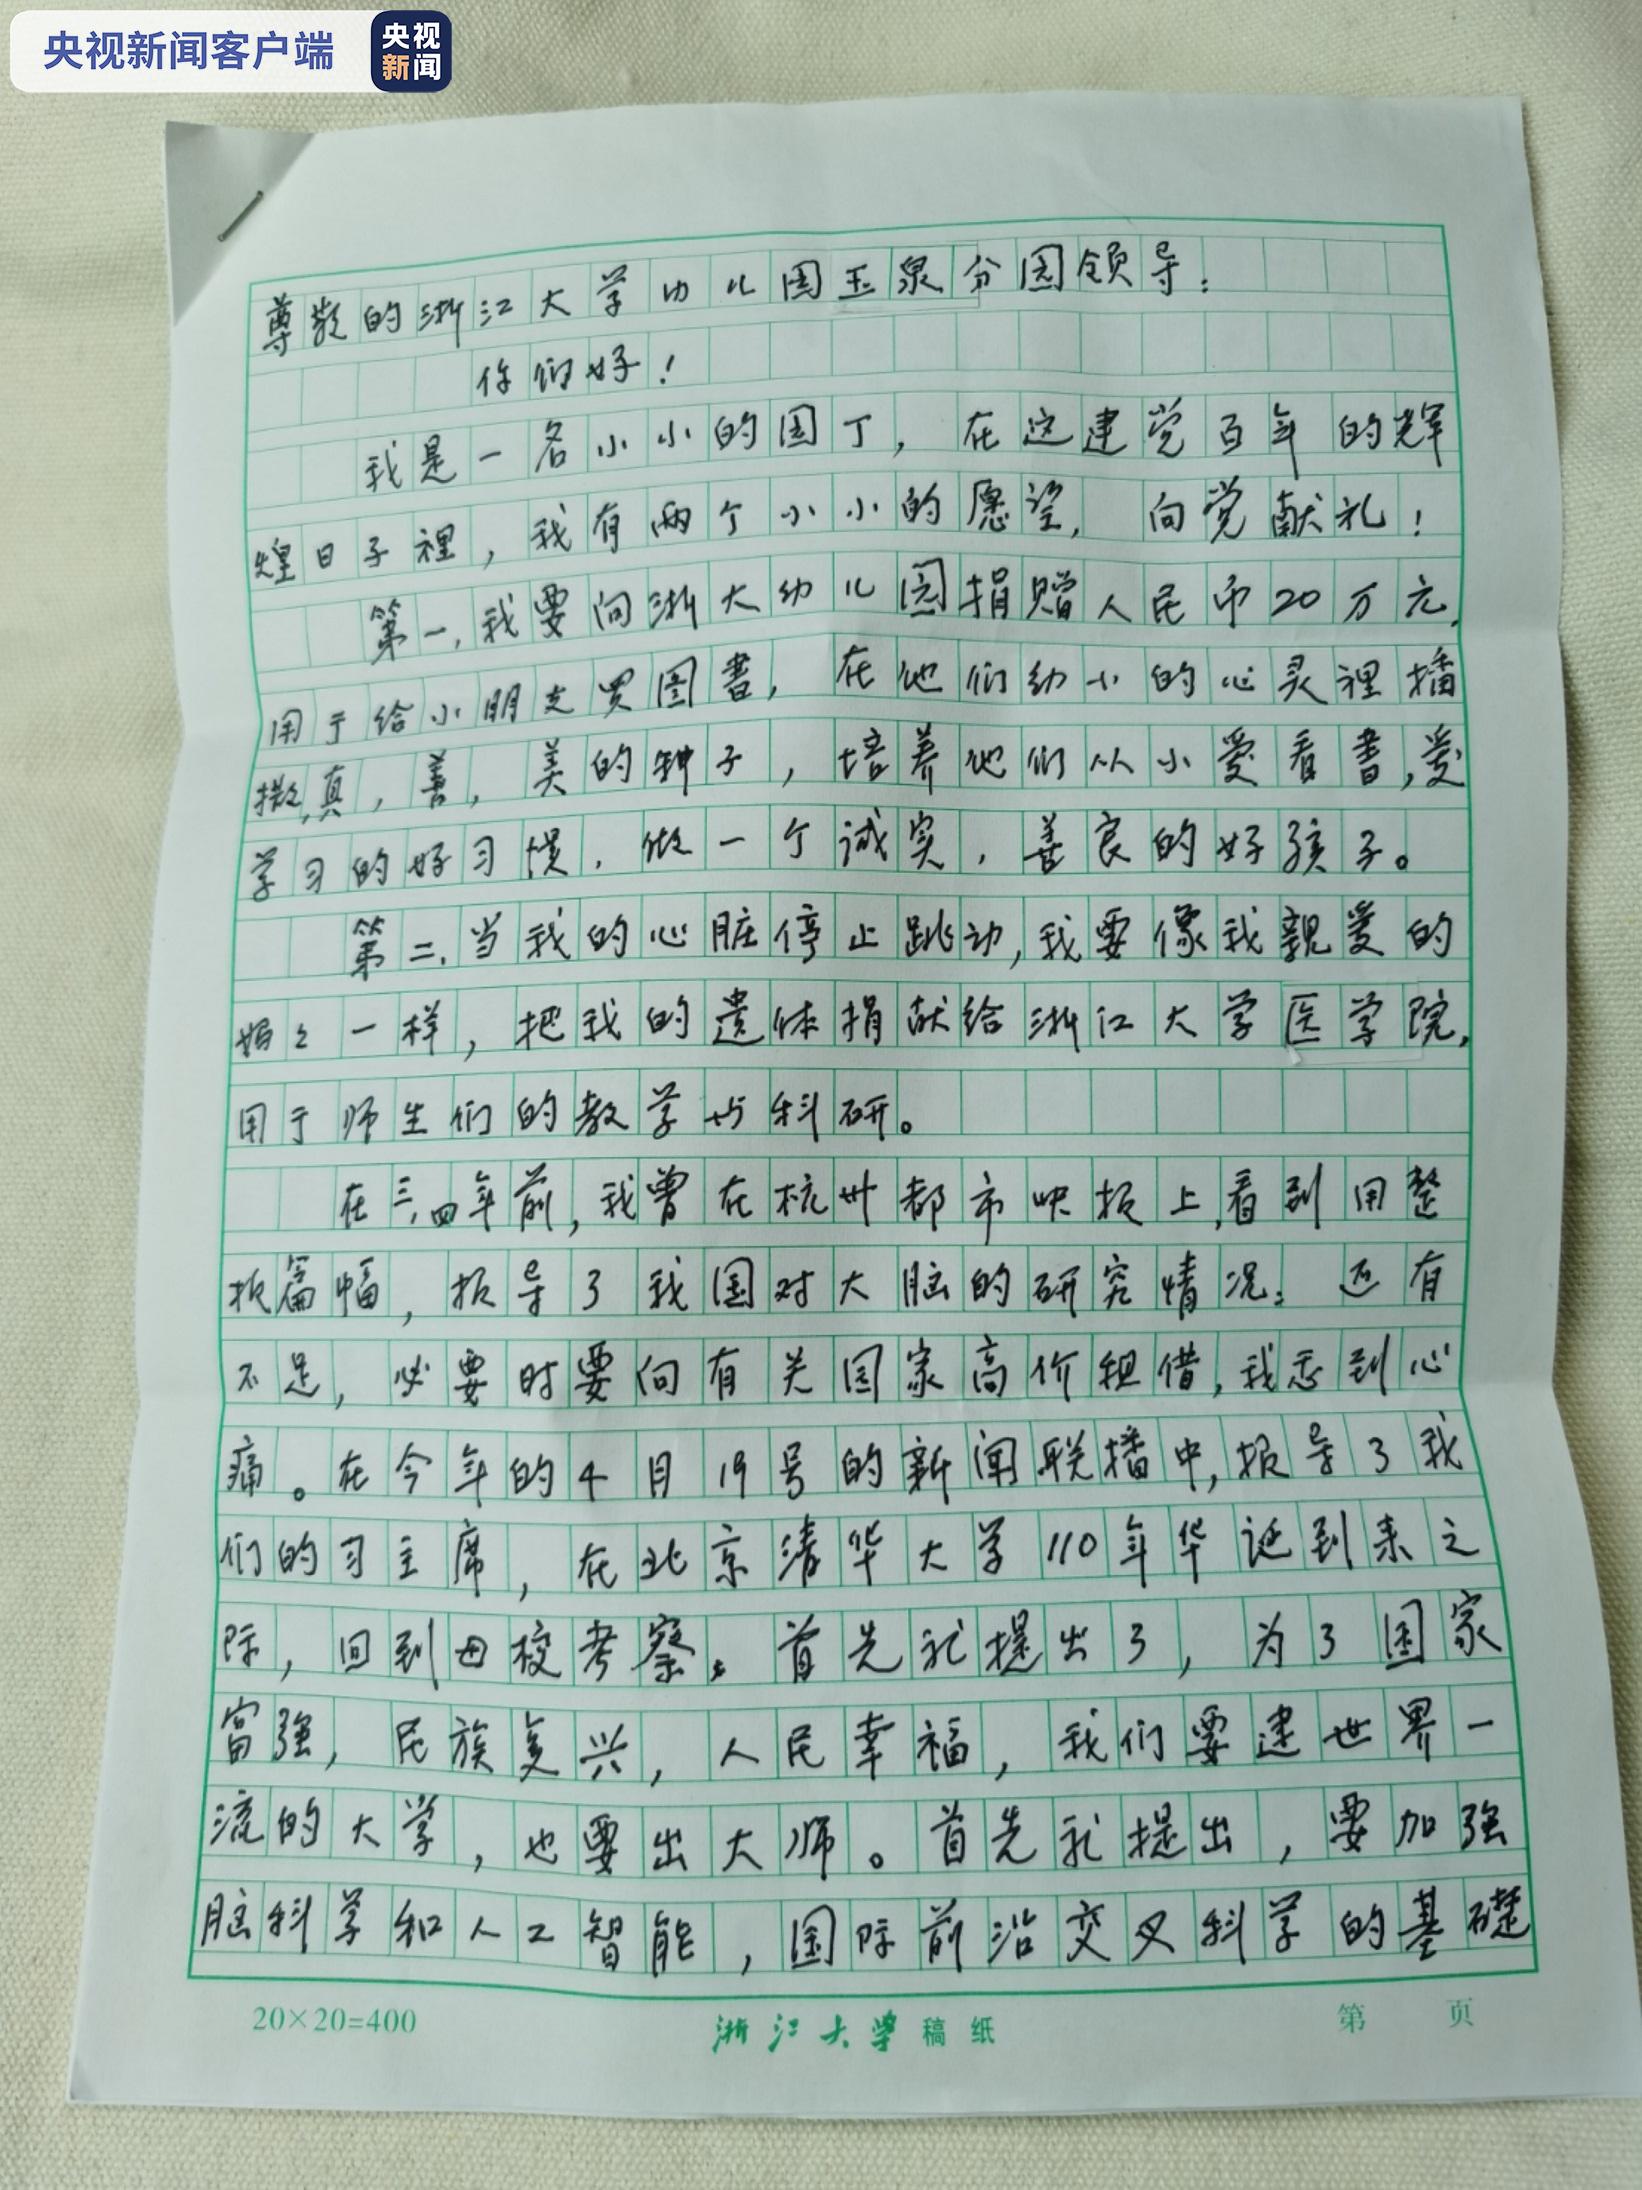 央视新闻客户端
央视
新闻
尊敬的浙江大学幼儿园玉泉分园领导:
你们好!
我是一名小小的园丁,在这建党百年的辉
煌日子裡,我有两个小小的愿望,向党献礼!
第一,我要向浙大幼儿园捐赠人民币20万元,
用于给小朋友买图書,在他们幼小的心灵裡播
撒,真,善,美的种子,培养他们从小爱看書,爱
学习的好习惯,做一个诚实,善良的好孩子。
第二,当我的心脏停止跳动,我要像我親爱的
妈々一样,把我的遗体捐献给浙江大学医学院,
用于师生们的教学与科研。
在三,四年前,我曾在杭州都市快报上,看到用整
报篇幅,报导了我国对大脑的研究情况:还有
不足,必要时要向有关国家高价租借,我感到心
痛。在今年的4月19号的新闻联播中,报导了我
们的习主席,在北京清华大学110年华诞到来之
际,回到母校考察。首先就提出了,为了国家
富强,民族复兴,人民幸福,我们要建世界一
流的大学,也要出大师。首先就提出,要加强
脑科学和人工智能,国际前沿交叉科学的基礎
20×20=400
浙江大学稿纸
第 页